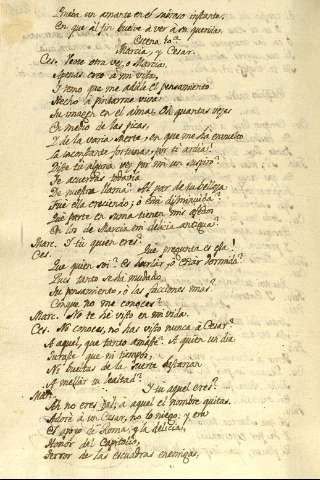 un amante en el mismo instante,
En que al fin buelve á ver á su querida.
Escena 10.ª
Marcia, y Cesar.
Ces. Verte otra vez, ó Marcia!
Apenas creo á mi vista,
I temo que me adule el pensamiento
Hecho á pintarme viva
Su imagen en el alma. Oh quantas vezes
En medio de las picas,
I de la varia suerte, en que me há embuelto
La inconstante fortuna, por ti ardia!
tu alguna vez por mi un suspiro?
Te acuerdas todavia
De nuestra llama? Al par de tu belleza
Fue ella creciendo; ó está disminuida?
Que parte en suma tienen mis afectos
En los de Marcia, mi delicia antigua?
Marc. I tú quien eres?
Ces. Que pregunta es esa!
Que quien soi? Es burlar, ó estár dormida?
Pues tanto se há mudado,
Su pensamiento, ó las facciones mias?
Conque no me conoces?
Marc. No te hé visto en mi vida.
Ces. No conoces, no has visto nunca á Cesar?
A aquel, que tanto amaste? A quien un dia
Juraste que ni tiempos,
Ni bueltas de la suerte bastarian
A mellar tu lealtad?
Mar. I tu aquel eres?
Ah no eres tal; á aquel el nombre quitas.
Adoré á un Cesar, no lo niego; y era
El apoyo de Roma, y la delicia,
Honor del Capitolio,
Terror de las escuadras enemigas,